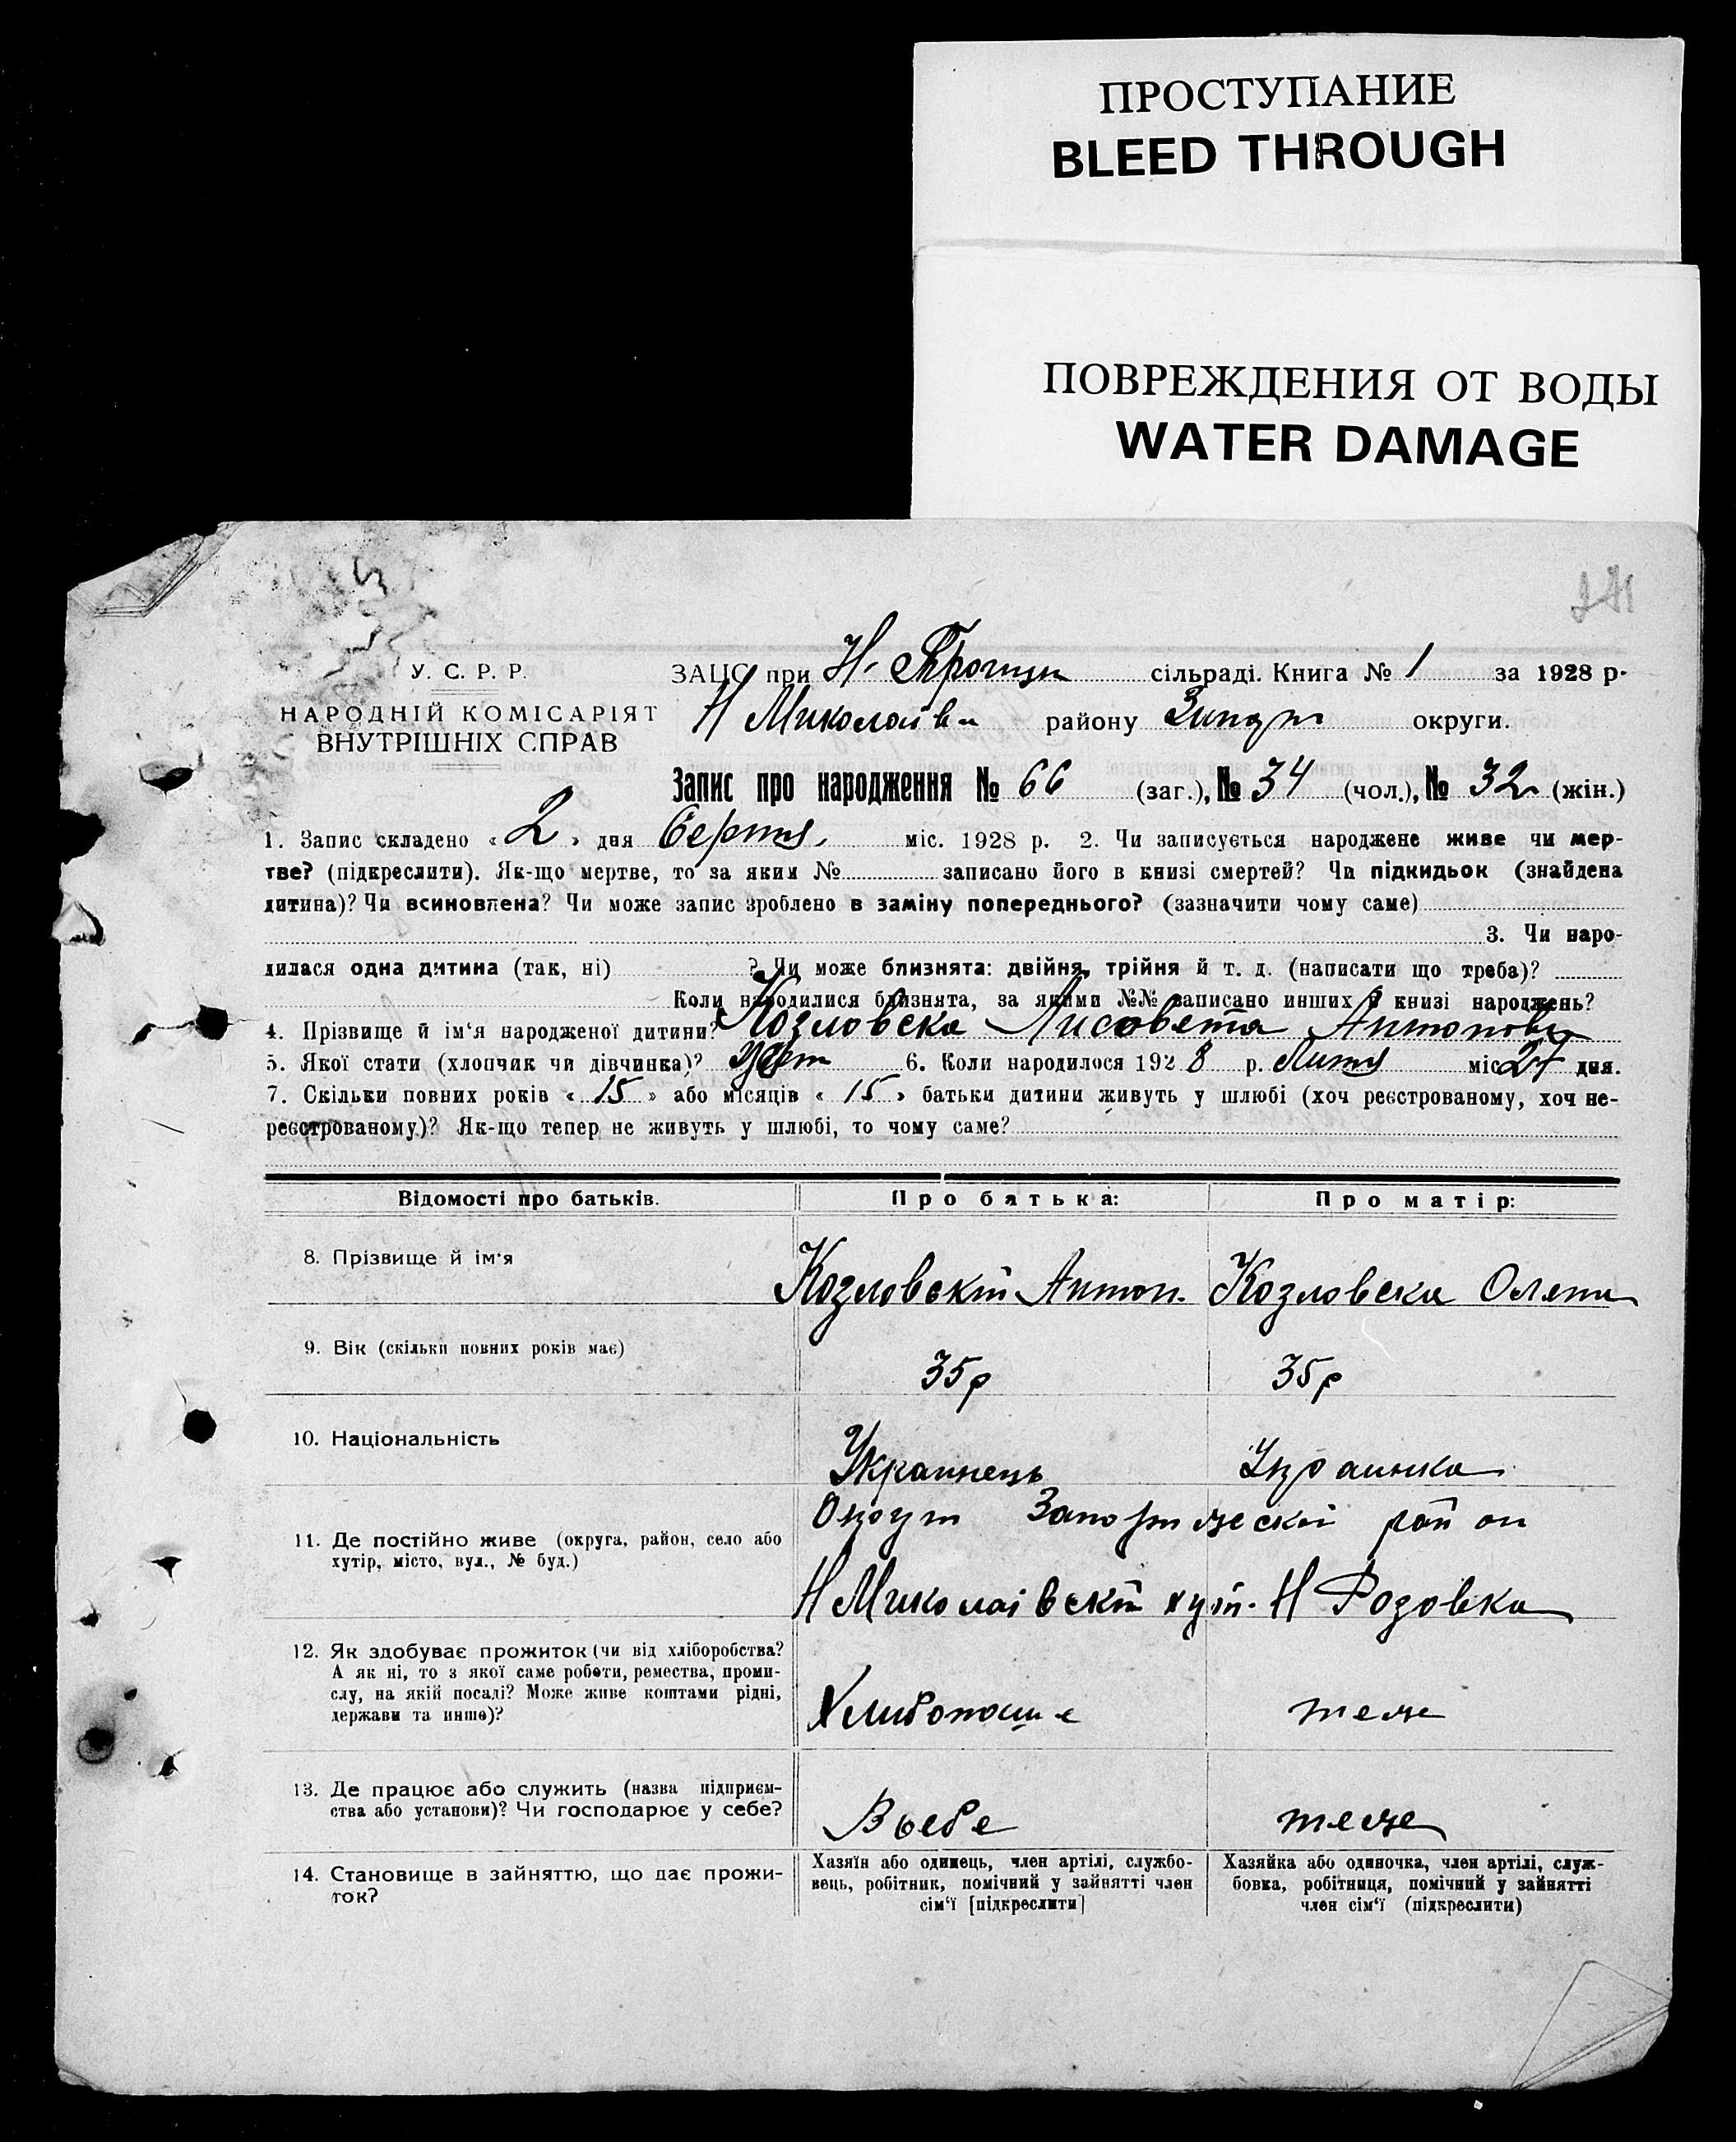 ПРОСТУПАНИЕ
BLEED THROUGH
ПОВРЕЖДЕНИЯ ОТ ВОДЫ
WATER DAMAGE
У. С. Р. Р.
НАРОДНІЙ КОМІСАРІЯТ
ВНУТРІШНІХ СПРАВ
ЗАЦС при Н. сільраді. Книга № 1 за 1928 р.
Н Миколаївки району округи.
Запис про народження № 66 (заг.), № 34 (чол.), № 32 (жін.)
1. Запис складено « 2 » дня міс. 1928 р. 2. Чи записується народжене живе чи мер-
тве? (підкреслити). Як-що мертве, то за яким № записано його в книзі смертей? Чи підкидьок (знайдена
дитина)? Чи всиновлена? Чи може запис зроблено в заміну попереднього? (зазначити чому саме)
3. Чи наро-
дилася одна дитина (так, ні) ? Чи може близнята: двійня, трійня й т. д. (написати що треба)?
Коли народилися близнята, за якими №№ записано инших в книзі народжень?
4. Прізвище й ім‘я народженої дитини? Козловска Лисовета Антоновн
5. Якої стати (хлопчик чи дівчинка)? 6. Коли народилося 1928 р. міс 27 дня.
7. Скільки повних років « 15 » або місяців « 15 » батьки дитини живуть у шлюбі (хоч реєстрованому, хоч не-
реєстрованому)? Як-що тепер не живуть у шлюбі, то чому саме?
Відомості про батьків. Про батька: Про матір:
8. Прізвище й ім‘я Козловскій Антон. Козловска Олена
9. Вік (скільки повних років має) 35 р 35 р
10. Національність Украинець Украинка
11. Де постійно живе (округа, район, село або
хутір, місто, вул., № буд.)
Округ район
Н Миколаівскій хут. Н Розовка
12. Як здобуває прожиток (чи від хліборобства?
А як ні, то з якої саме роботи, ремества, проми-
слу, на якій посаді? Може живе коштами рідні,
держави та инше)?
теже
13. Де працює або служить (назва підприєм-
ства або установи)? Чи господарює у себе?
Всебе теже
14. Становище в зайняттю, що дає прожи-
ток?
Хазяїн або одинець, член артілі, службо-
вець, робітник, помічний у зайнятті член
сім‘ї [підкреслити]
Хазяйка або одиночка, член артілі, служ-
бовка, робітниця, помічний у зайнятті
член сім‘ї (підкреслити)